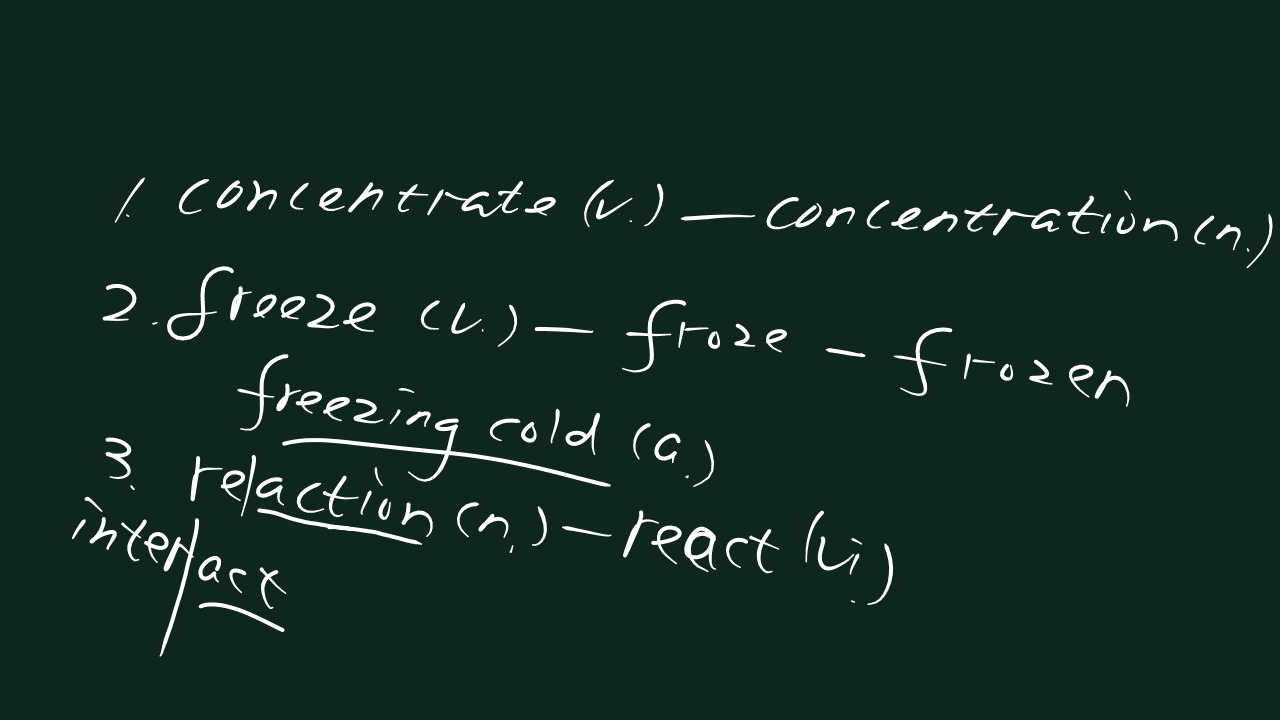 1. concentrate (v.) — concentration (n.)
2. freeze (v.) — froze — frozen
freezing cold (a.)
3. re/action (n.) — react (vi.)
inter/act